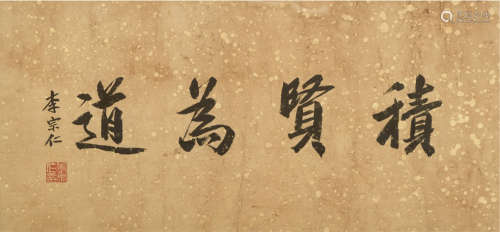 積賢為道
李宗仁